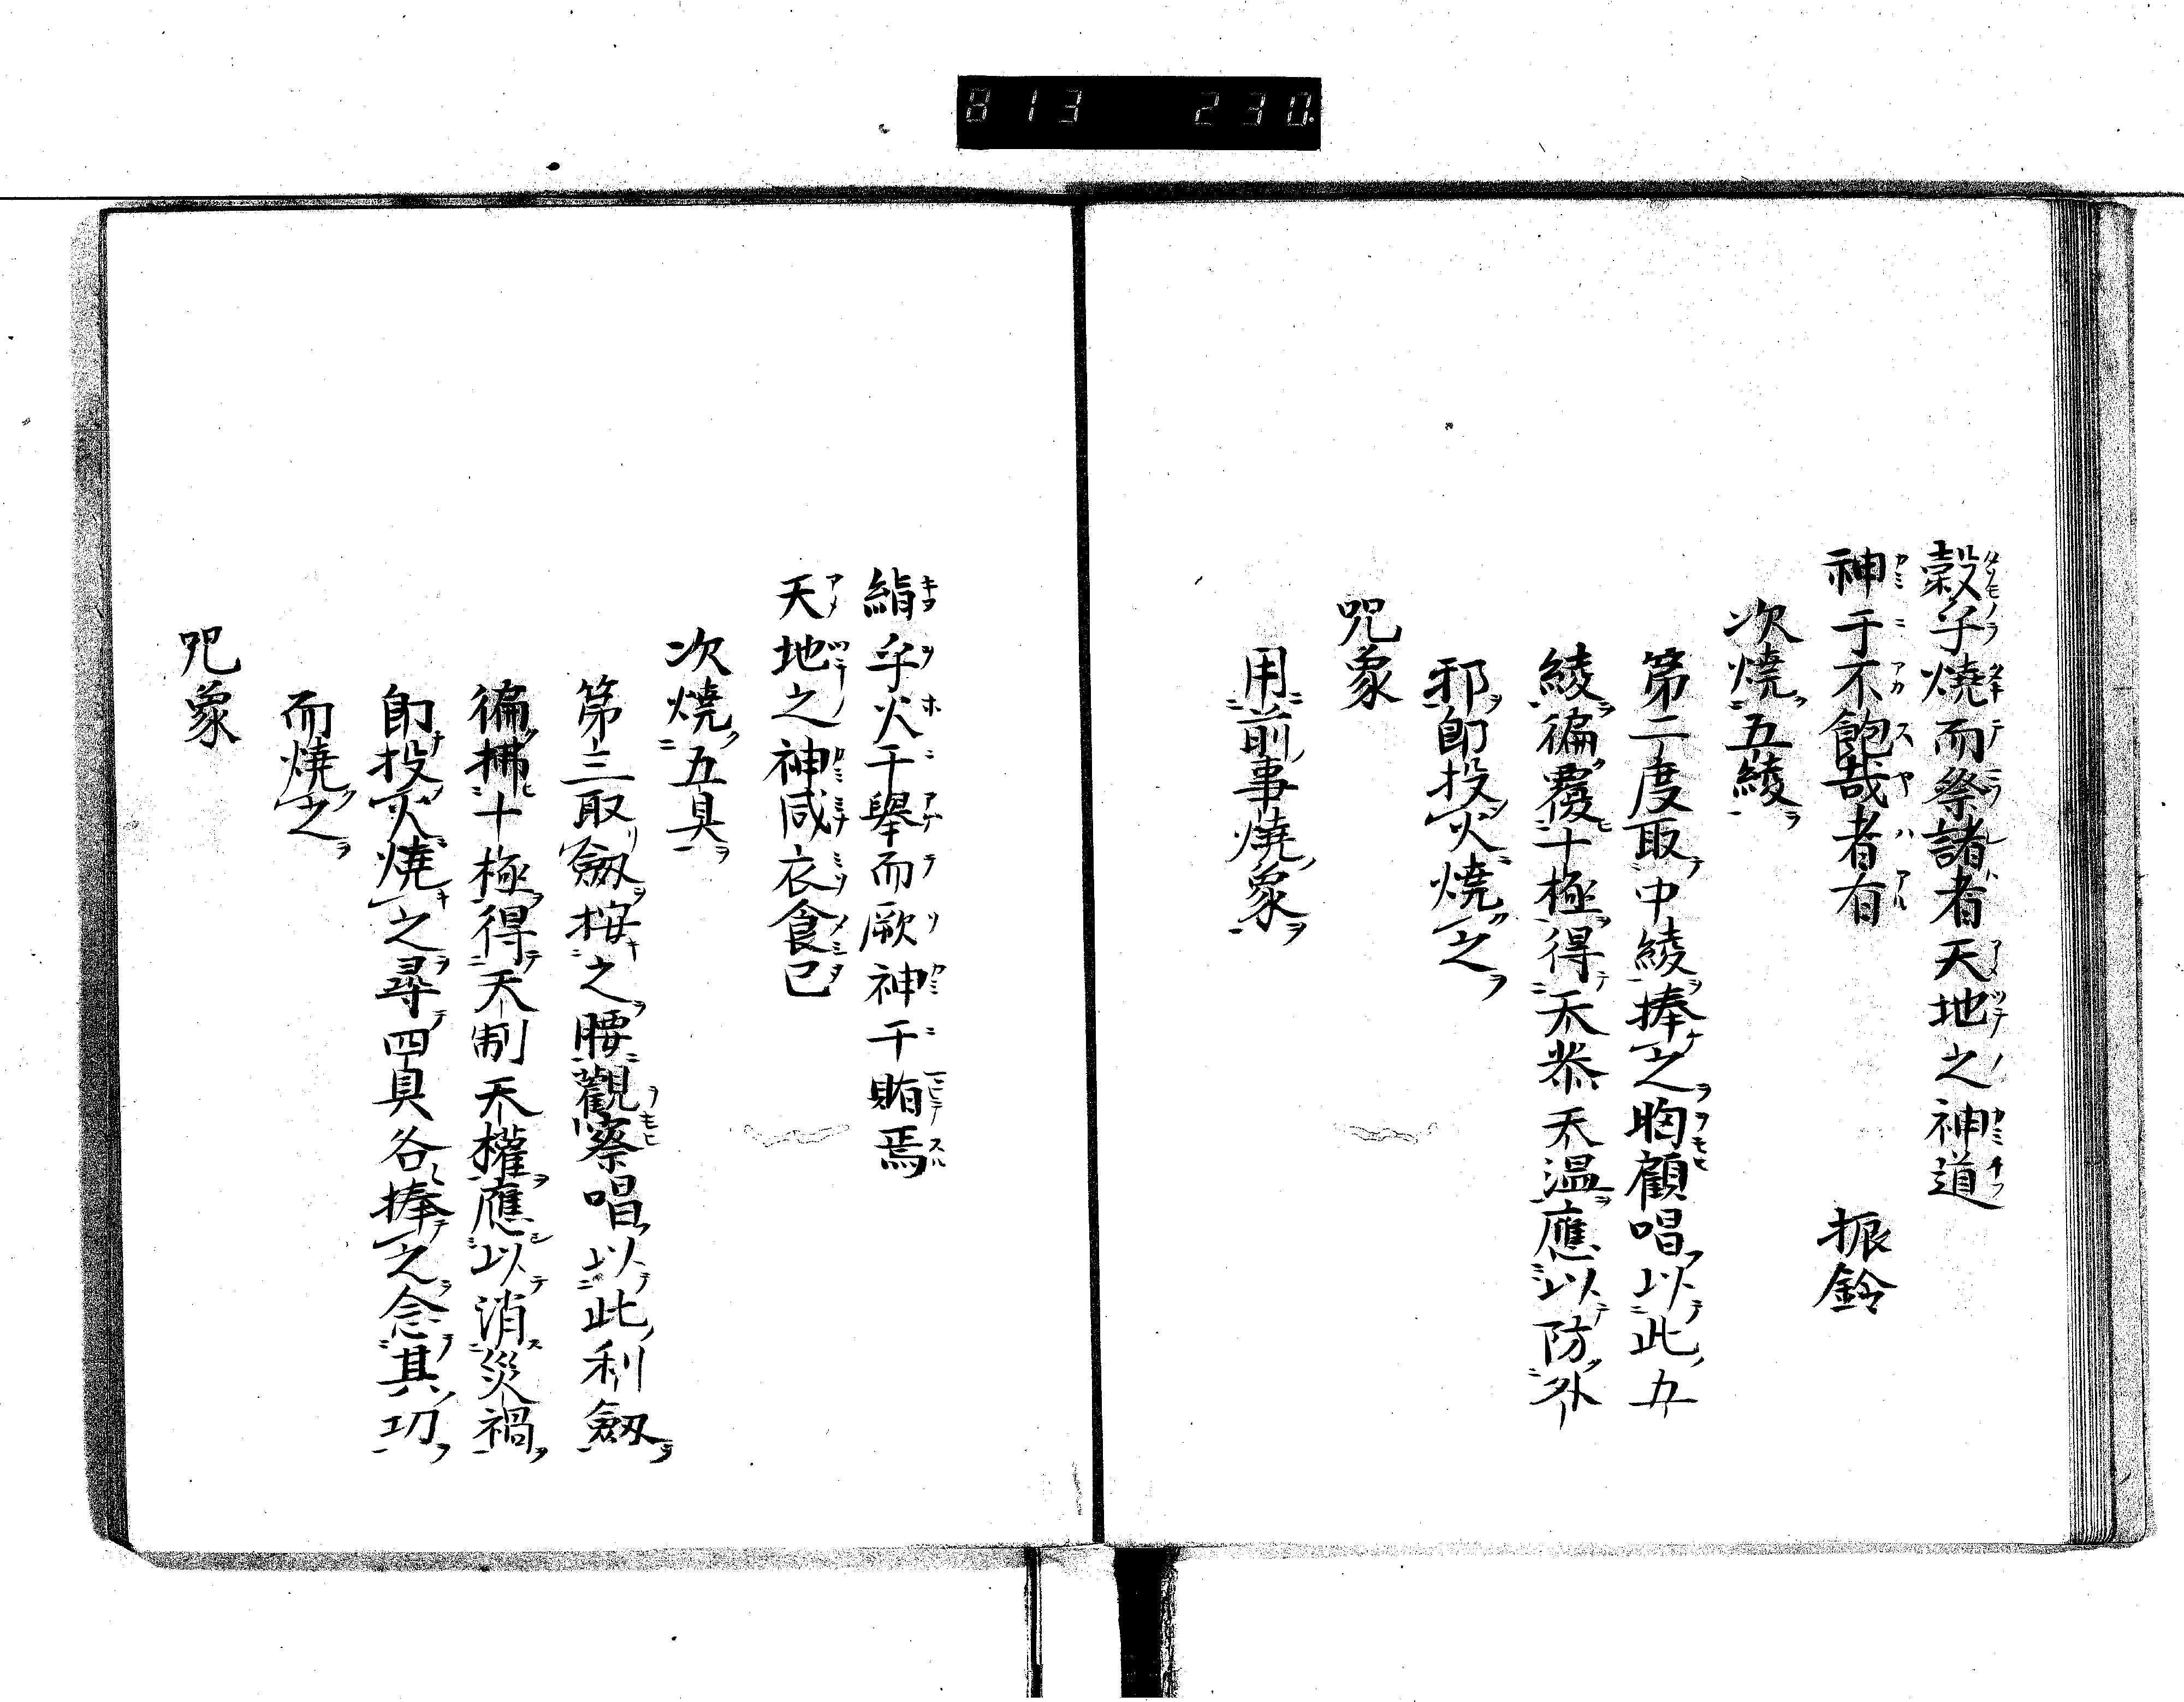 813 230
穀乎燒而祭諸者天地之神道
神于不飽哉者有 振鈴
次燒五綾
第二度取中綾捧之胸顧唱以此五
綾徧覆十極得天恭天温應以防外
邪即投火燒之
咒象
用前事燒象
絹乎火于擧而厥神于賄焉
天地之神咸衣食已
次燒五具
第三取劔按之腰觀察唱以此利劔
徧拂十極得天制天權應以消災禍
即投火燒之尋四具各捧之念其功
而燒之
咒象